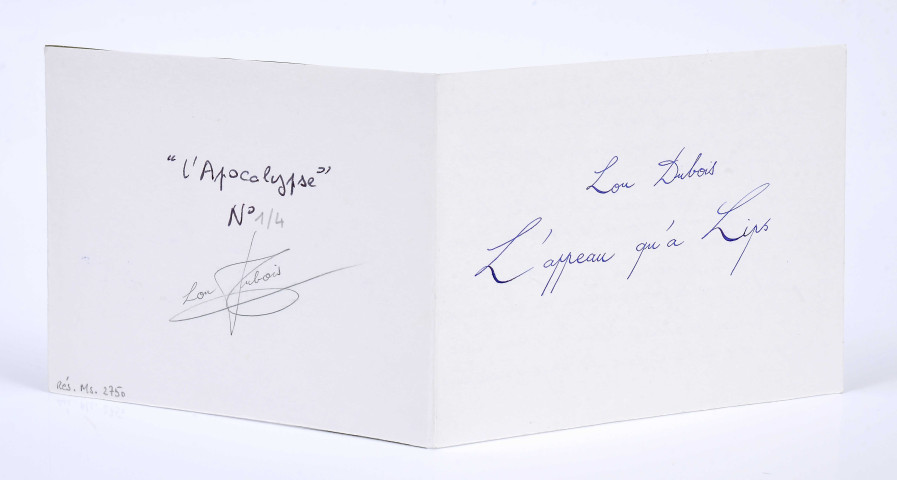 “l'Apocalypse”
N° 1/4
Lou Dubois
Rés. Ms. 2750
Lou Dubois
L'appeau qu'a Lips